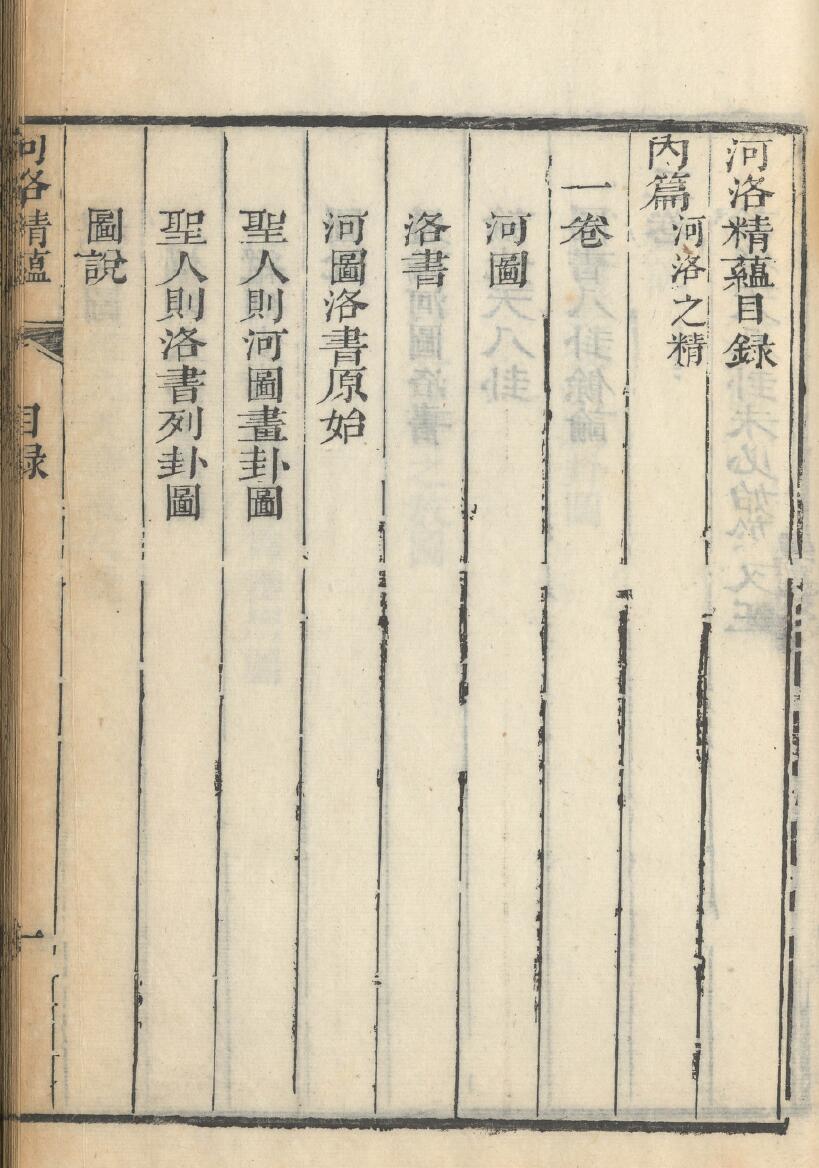 河洛精蘊目錄
內篇 河洛之精
一卷
河圖
洛書
河圖洛書原始
聖人則河圖畫卦圖
聖人則洛書列卦圖
圖說
河洛精蘊 目錄 一